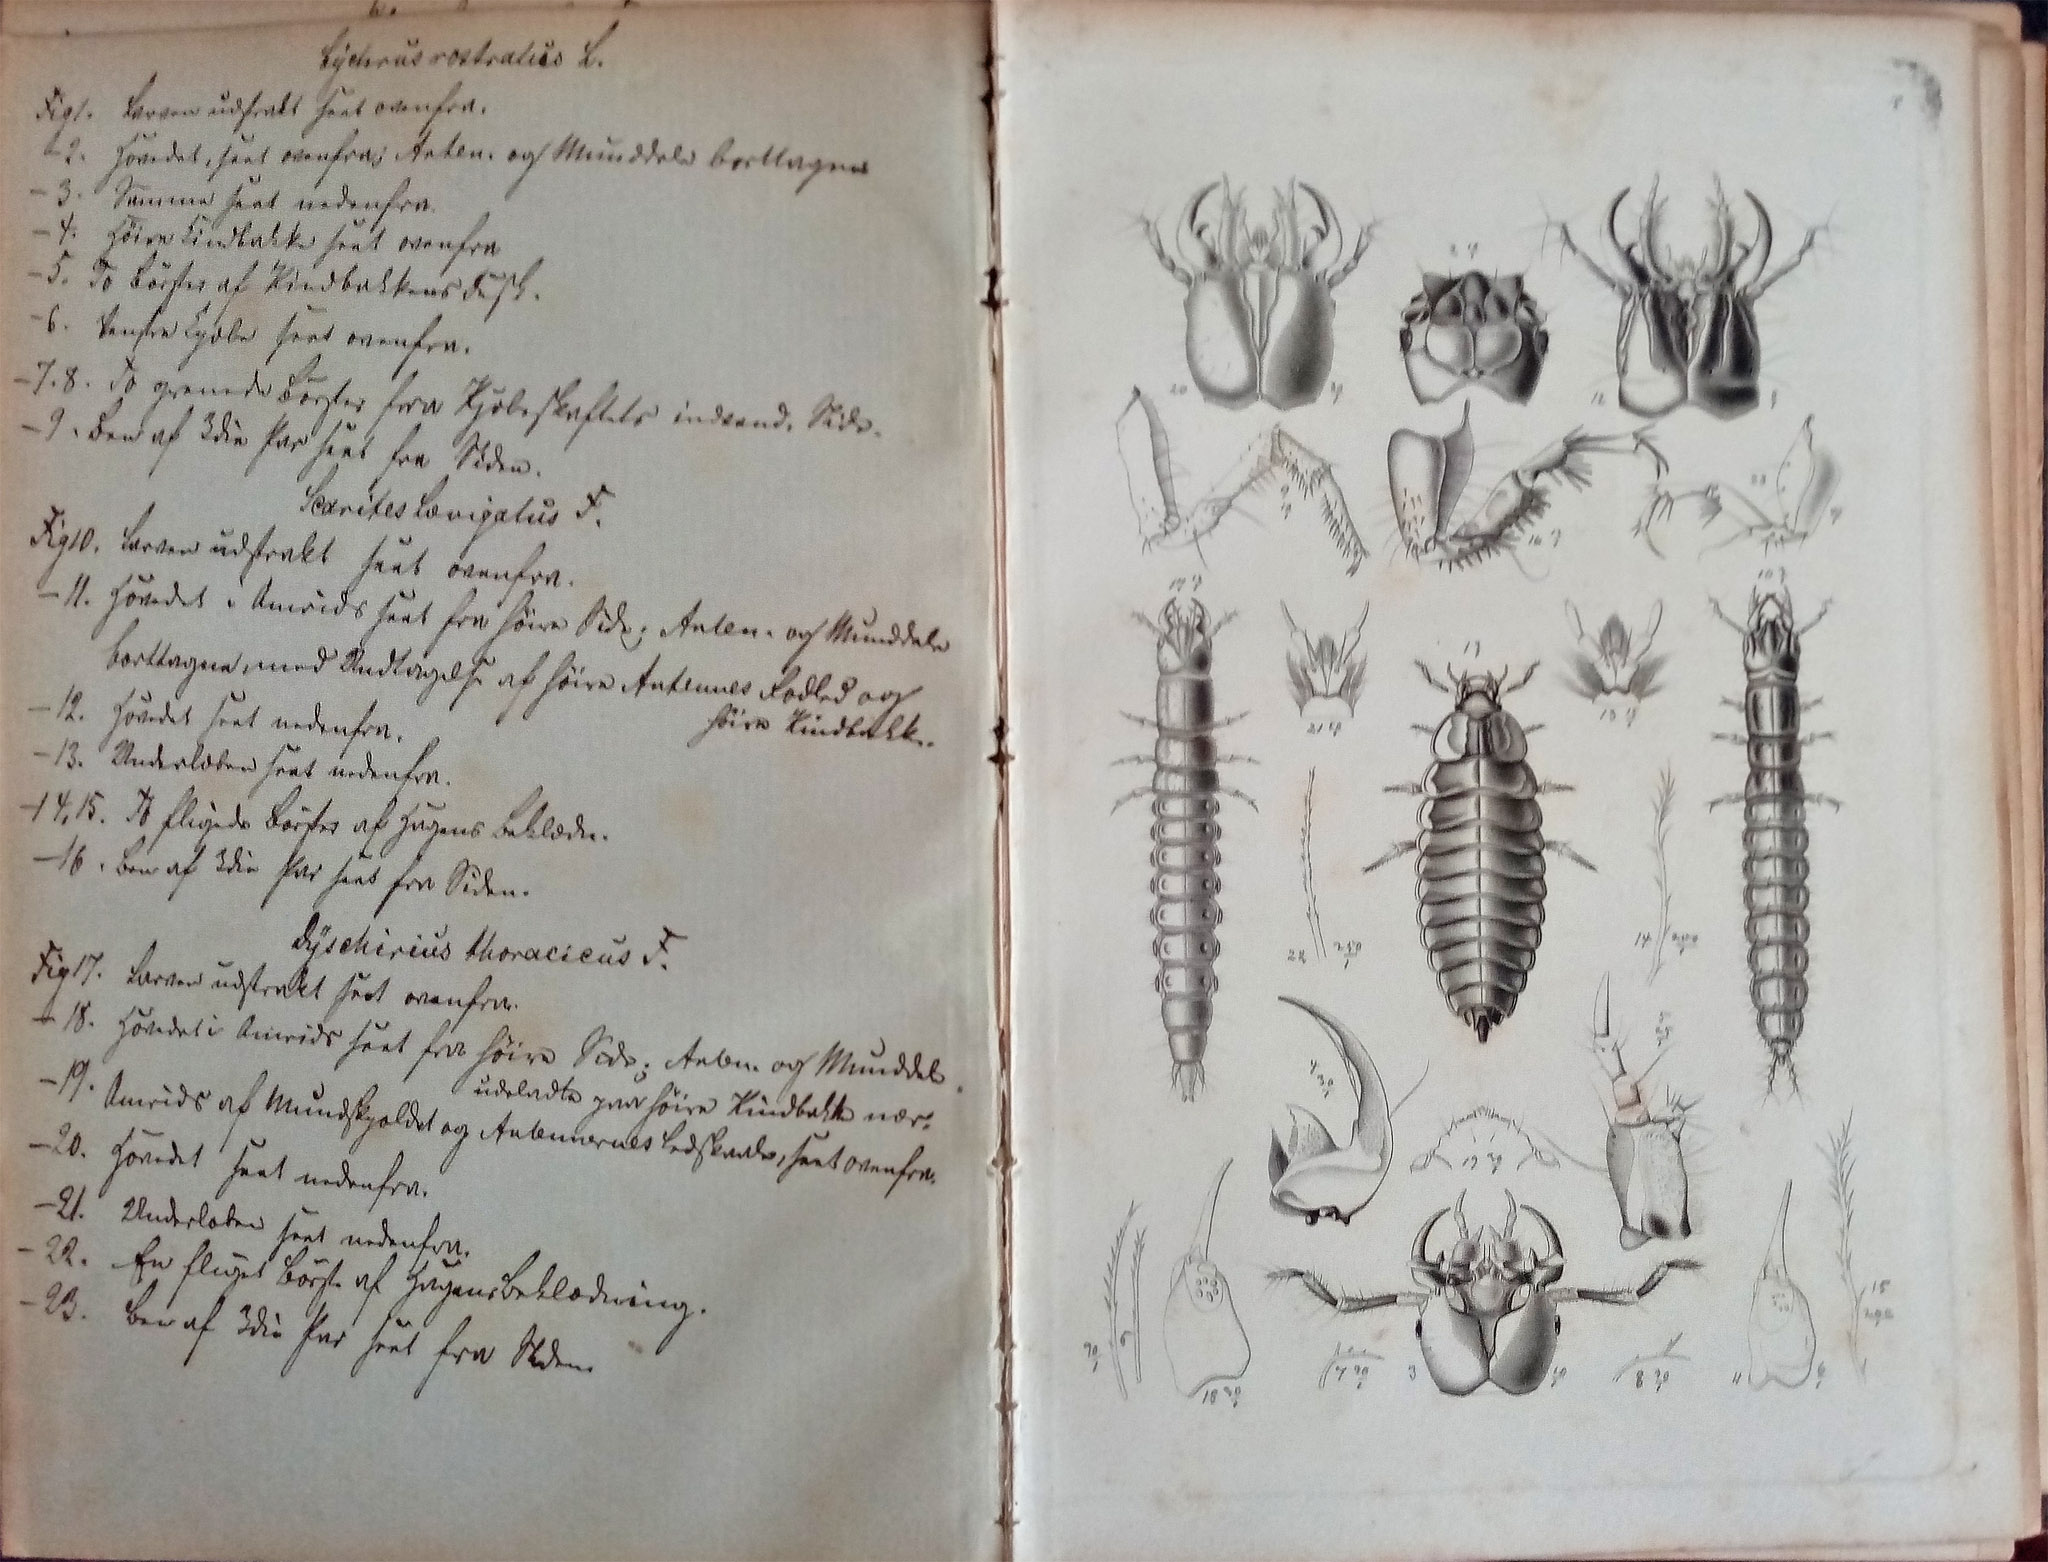 Cychrus rostratus L.
Fig 1. Larven udstrakt seet ovenfra.
-2. Hovedet, seet ovenfra; Anten. og Munddele borttagne
-3. Samme seet nedenfra.
-4. Höire Kindbakke seet ovenfra
-5. To Börster af Kindbakkens Dusk.
-6. Venstre Kjæbe seet ovenfra.
-7.8. To grenede Börster fra Kjæbeskaftets indvend. Side.
-9. Ben af 3die Par seet fra Siden.
Scarites Lævigatus F.
Fig 10. Larven udstrakt seet ovenfra.
-11. Hovedet i Omrids seet fra höire Side; Anten. og Munddele
borttagne, med Undtagelse af höire Antennes Rodled og
höire Kindbakke.
-12. Hovedet seet nedenfra.
-13. Underlæben seet nedenfra.
-14,15. To fligede Börster af Hagens Beklædn.
-16. Ben af 3die Par seet fra Siden.
Dÿschirius thoracicus F.
Fig 17. Larven udstrakt seet ovenfra.
-18. Hovedet i Omrids seet fra höire Side; Anten. og Munddel.
udeladte paa höire Kindbakke nær.
-19. Omrids af Mundskjoldet og Antennernes Ledskaale, seet ovenfra.
-20. Hovedet seet nedenfra.
-21. Underlæben seet nedenfra.
-22. En fliget Börste af Hagens Beklædning.
-23. Ben af 3die Par seet fra Siden.
20
12
16
17
10
13
21
13
22
14
4
5
19
15
18
7
3
8
11